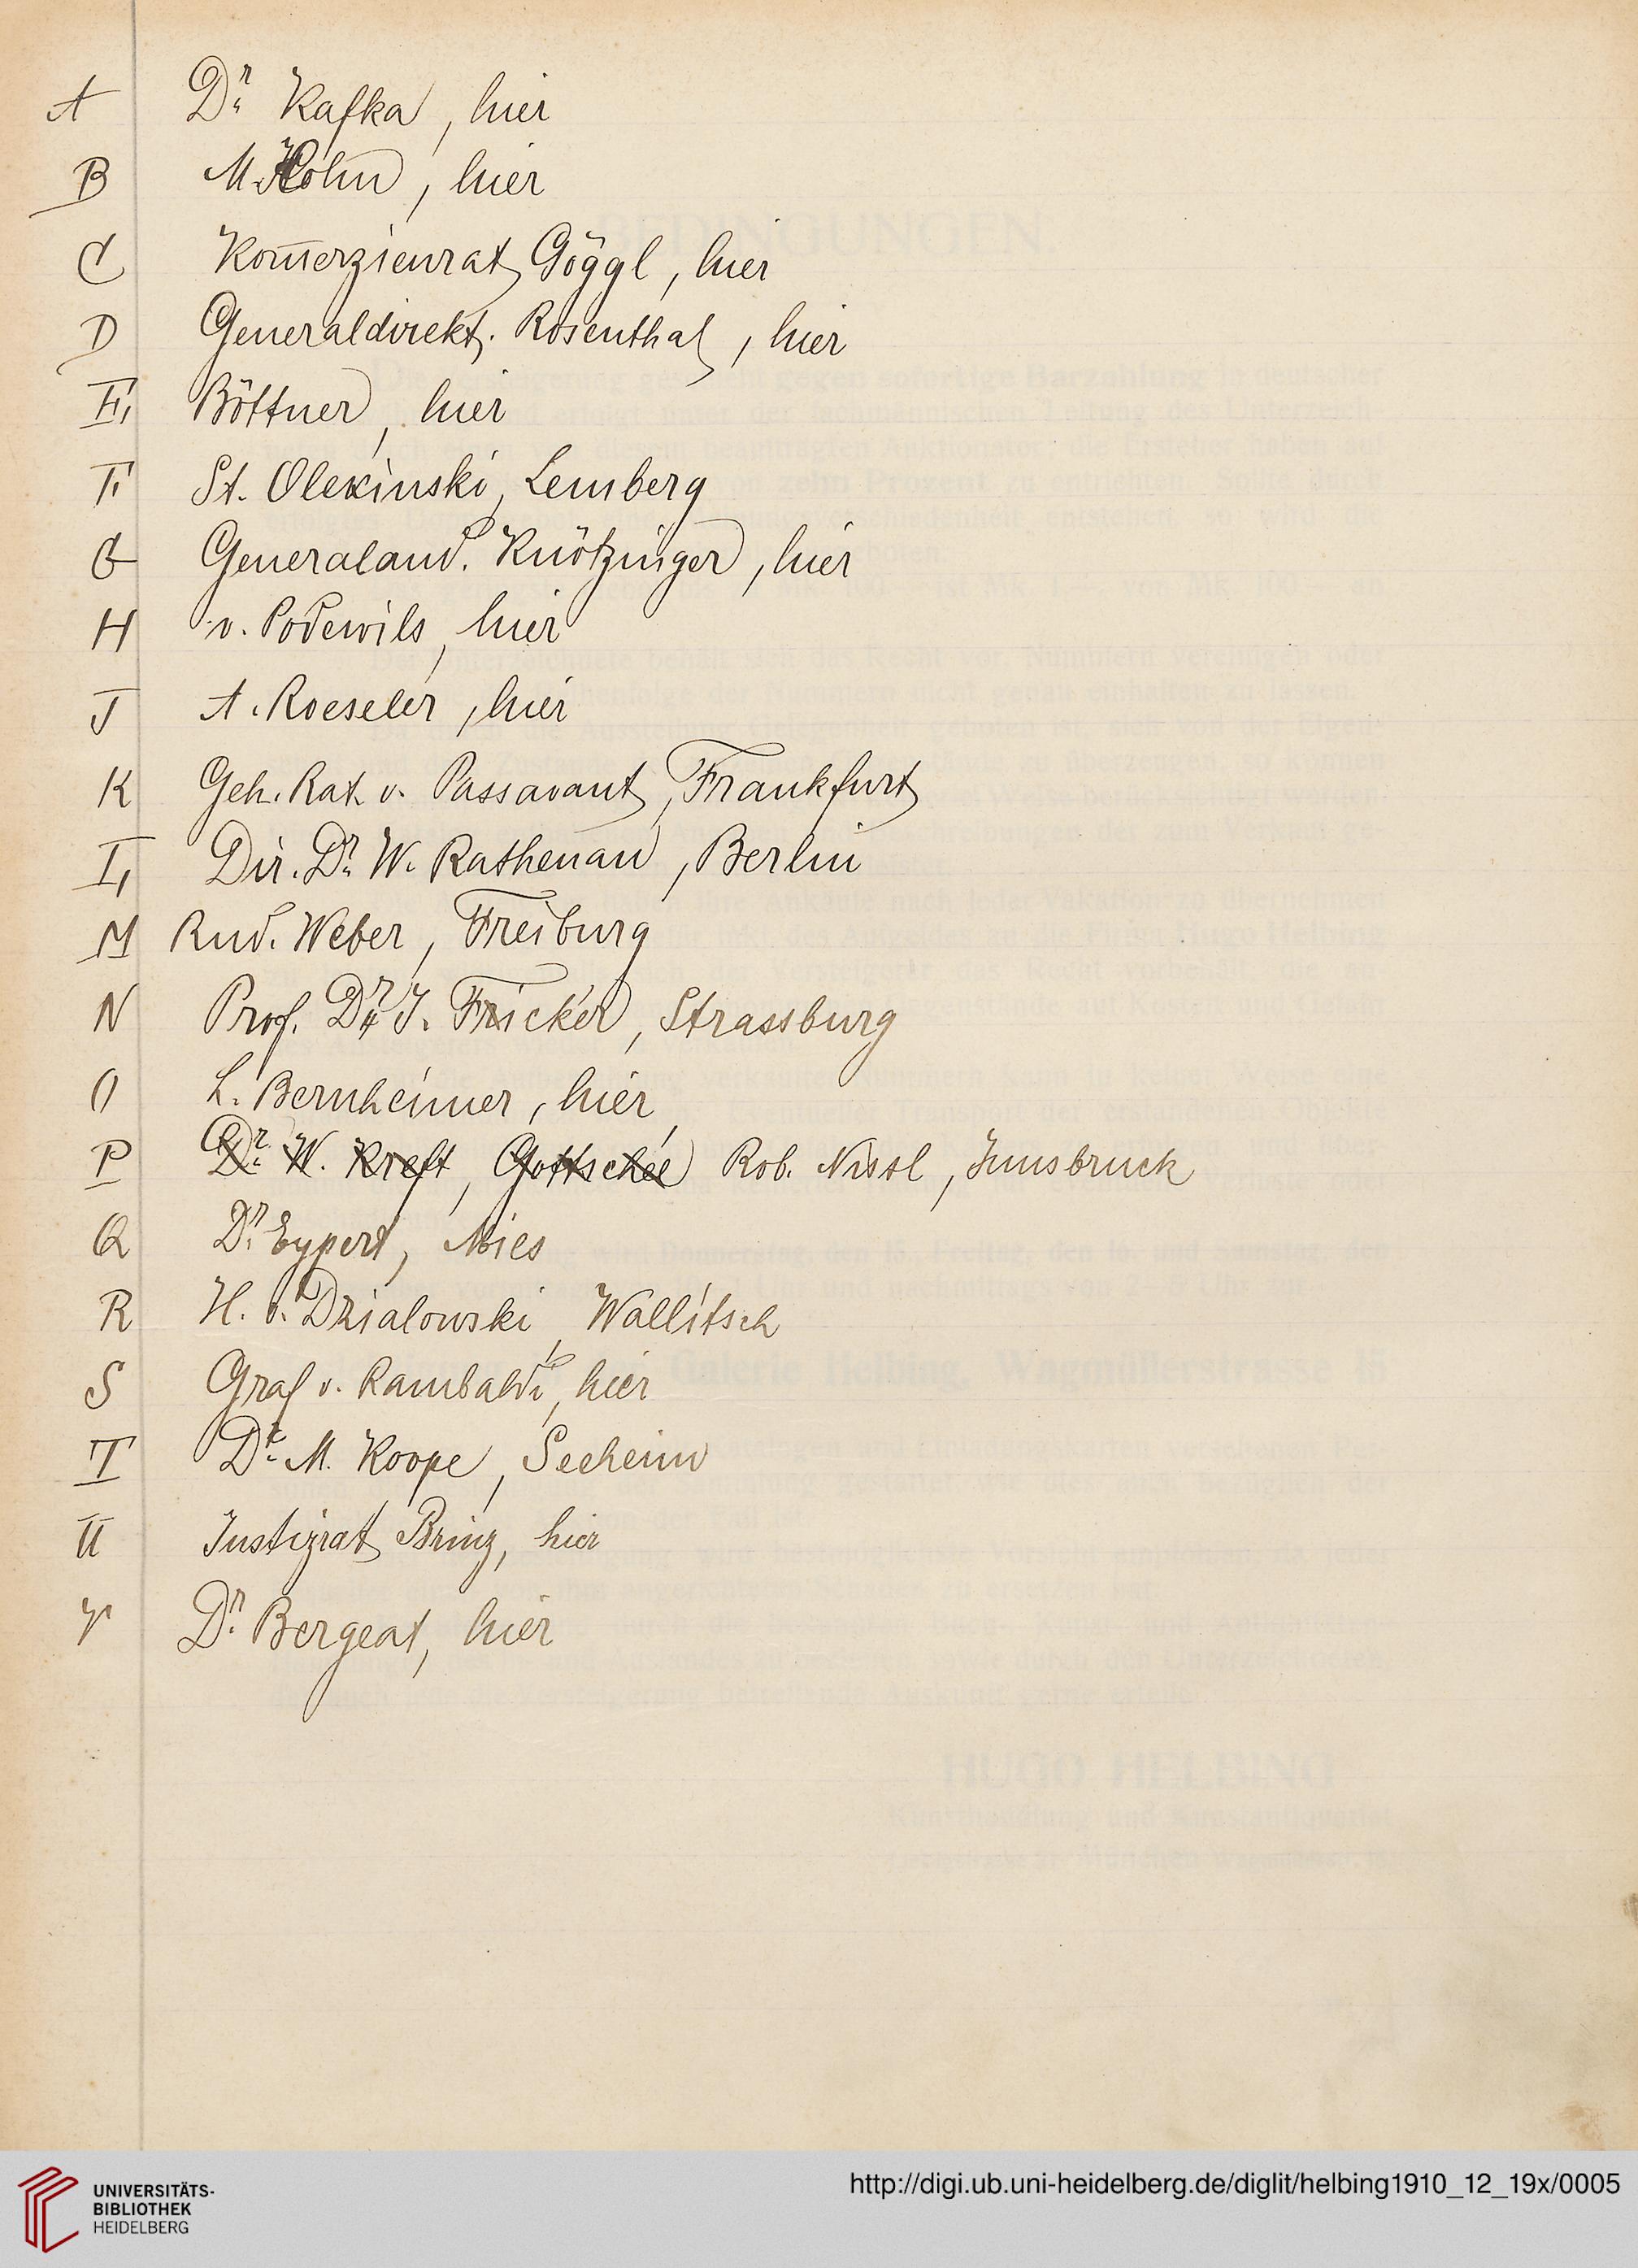 A Dr. Kafka, hier
B M. Kohn, hier
C Kom̄erzienrat Göggl, hier
D Generaldirekt. Rosenthal, hier
E, Böttner, hier
F St. Olexinski, Lemberg
G Generalaud. Knötzinger, hier
H v. Podewils, hier
J A. Roeseler, hier
K Geh. Rat. v. Passavant, Frankfurt
L, Dir. Dr. W. Rathenau, Berlin
M Rud. Weber, Freiburg
N Prof. Dr. J. Fricker, Strassburg
O L. Bernheimer, hier
P Dr. W. Kreft, Gottschee Rob. Nissl, Innsbruck
Q Dr. Eypert, Mies
R H. v. Dzialowski, Wallitsch
S Graf v. Rambaldi, hier
T Dr. M. Koope, Seeheim
U Justizrat Prinz, hier
V Dr. Bergeat, hier
BEDINGUNGEN
HUGO HELBING
UNIVERSITÄTS-
BIBLIOTHEK
HEIDELBERG
http://digi.ub.uni-heidelberg.de/diglit/helbing1910_12_19x/0005